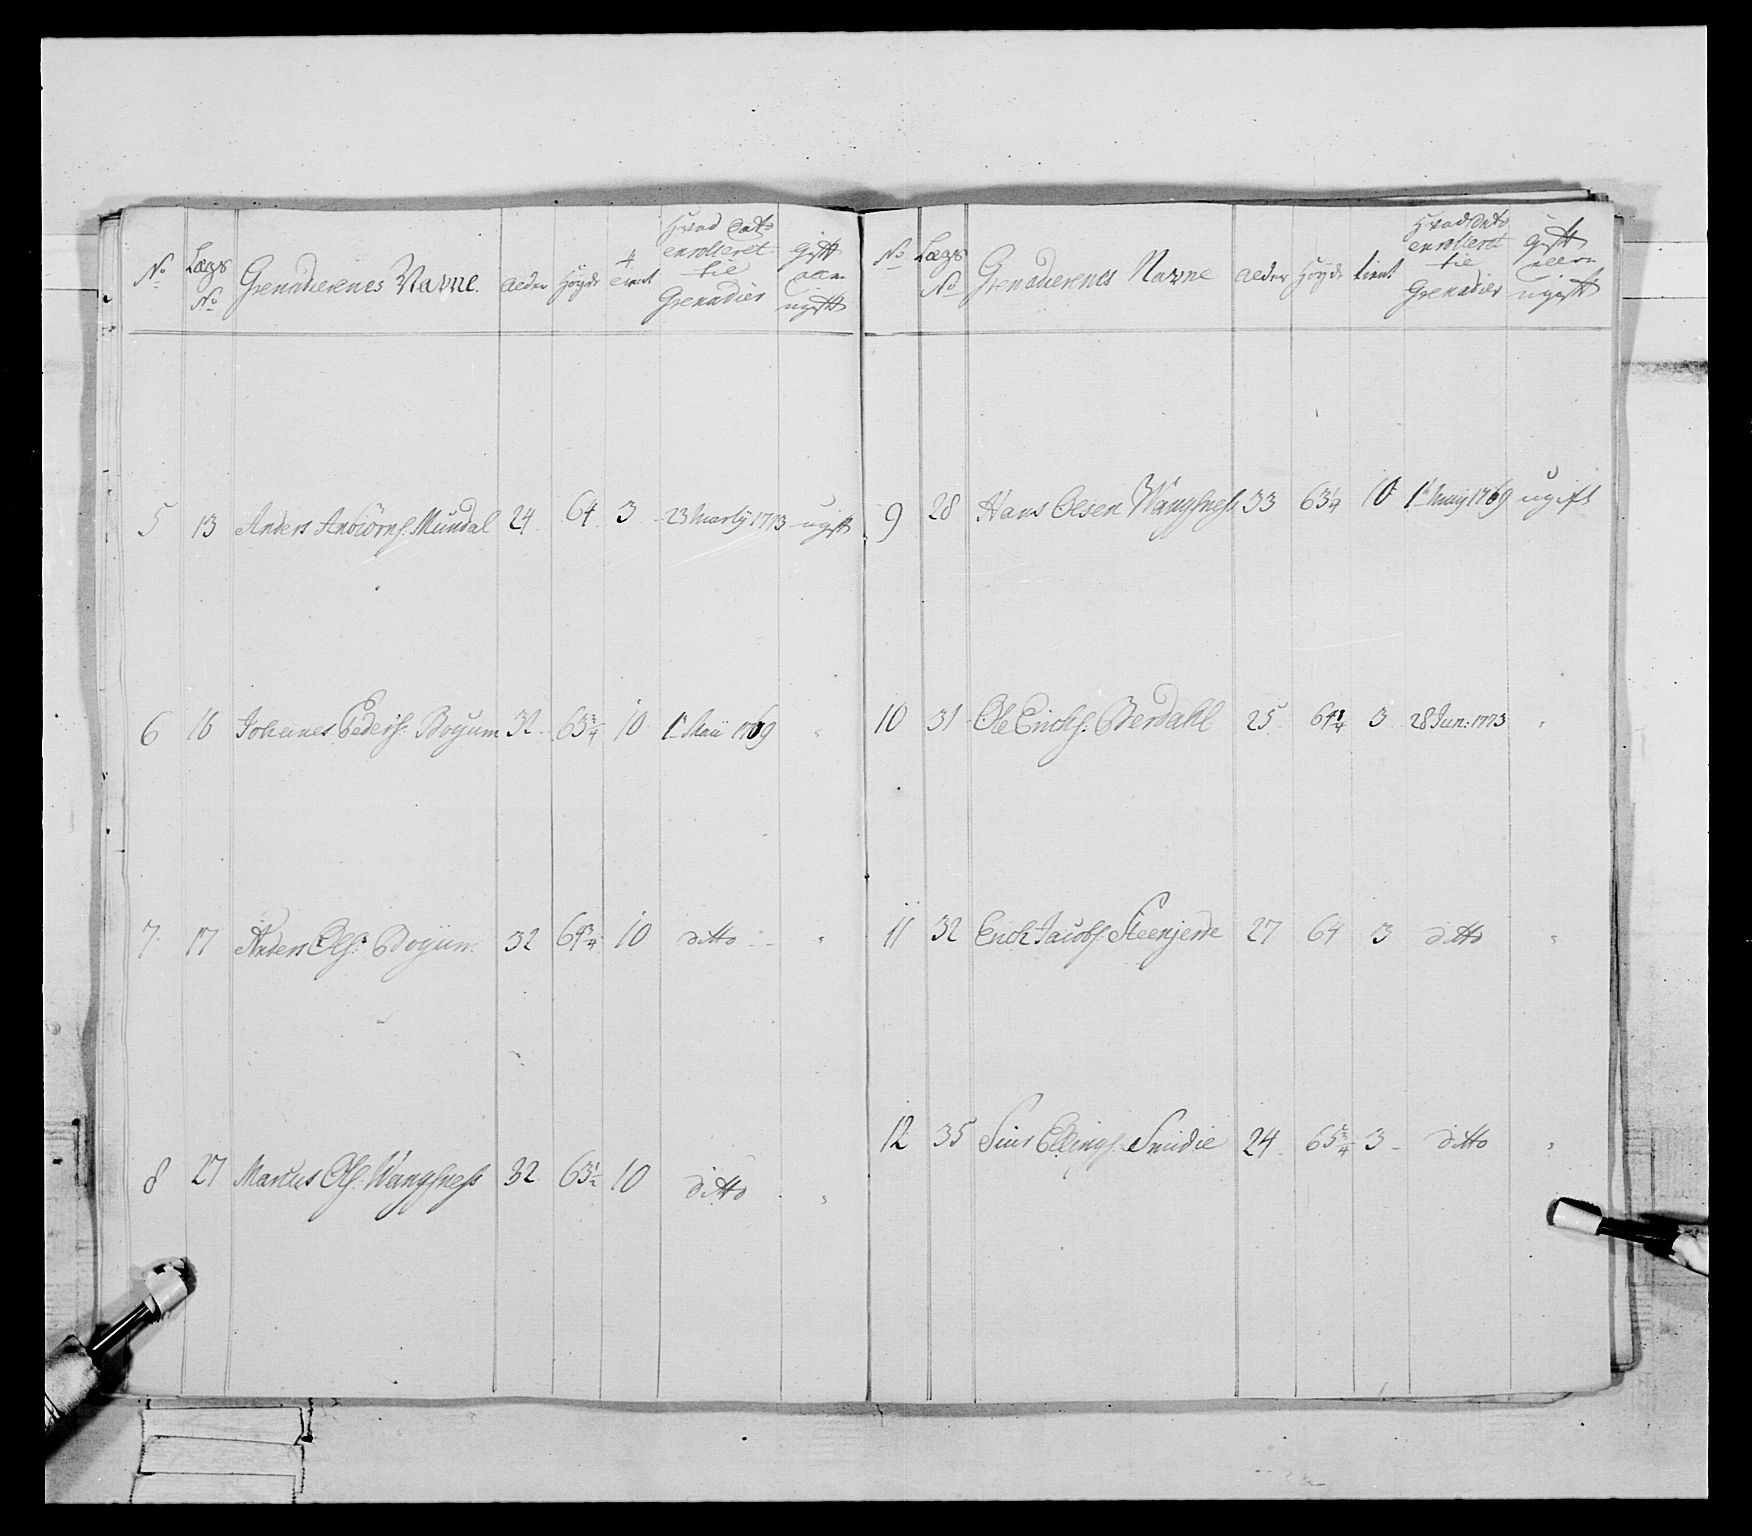 No Lægs No Grenadierenes Navne. alder Høyde tient Hvad Dato enrolleret til Grenadier Gift eller ugift
5 13 Anders Anbiörns. Mundal 24 64 3 23 Marty 1773 ugift
6 16 Johanes Peders. Boyum 32 63 3/4 10 1te Maii 1769 "
7 17 Anders Ols. Boyum 32 64 3/4 10 ditto "
8 27 Marcus Ols. Wangsness 32 63 1/2 10 ditto "
No Lægs No Grenadierenes Navne alder Høyde tient Hvad Dato enrolleret til Grenadier Gift eller ugift
9 28 Hans Olsen Wangsness 33 63 1/4 10 1te Maij 1769 ugift
10 31 Ole Erichs. Berdahl 25 64 1/4 3 28 Jun: 1773 "
11 32 Erich Jacobs. Steenjerde 27 64 3 ditto "
12 35 Siur Ellings. Smidie 24 65 3/4 3 ditto "